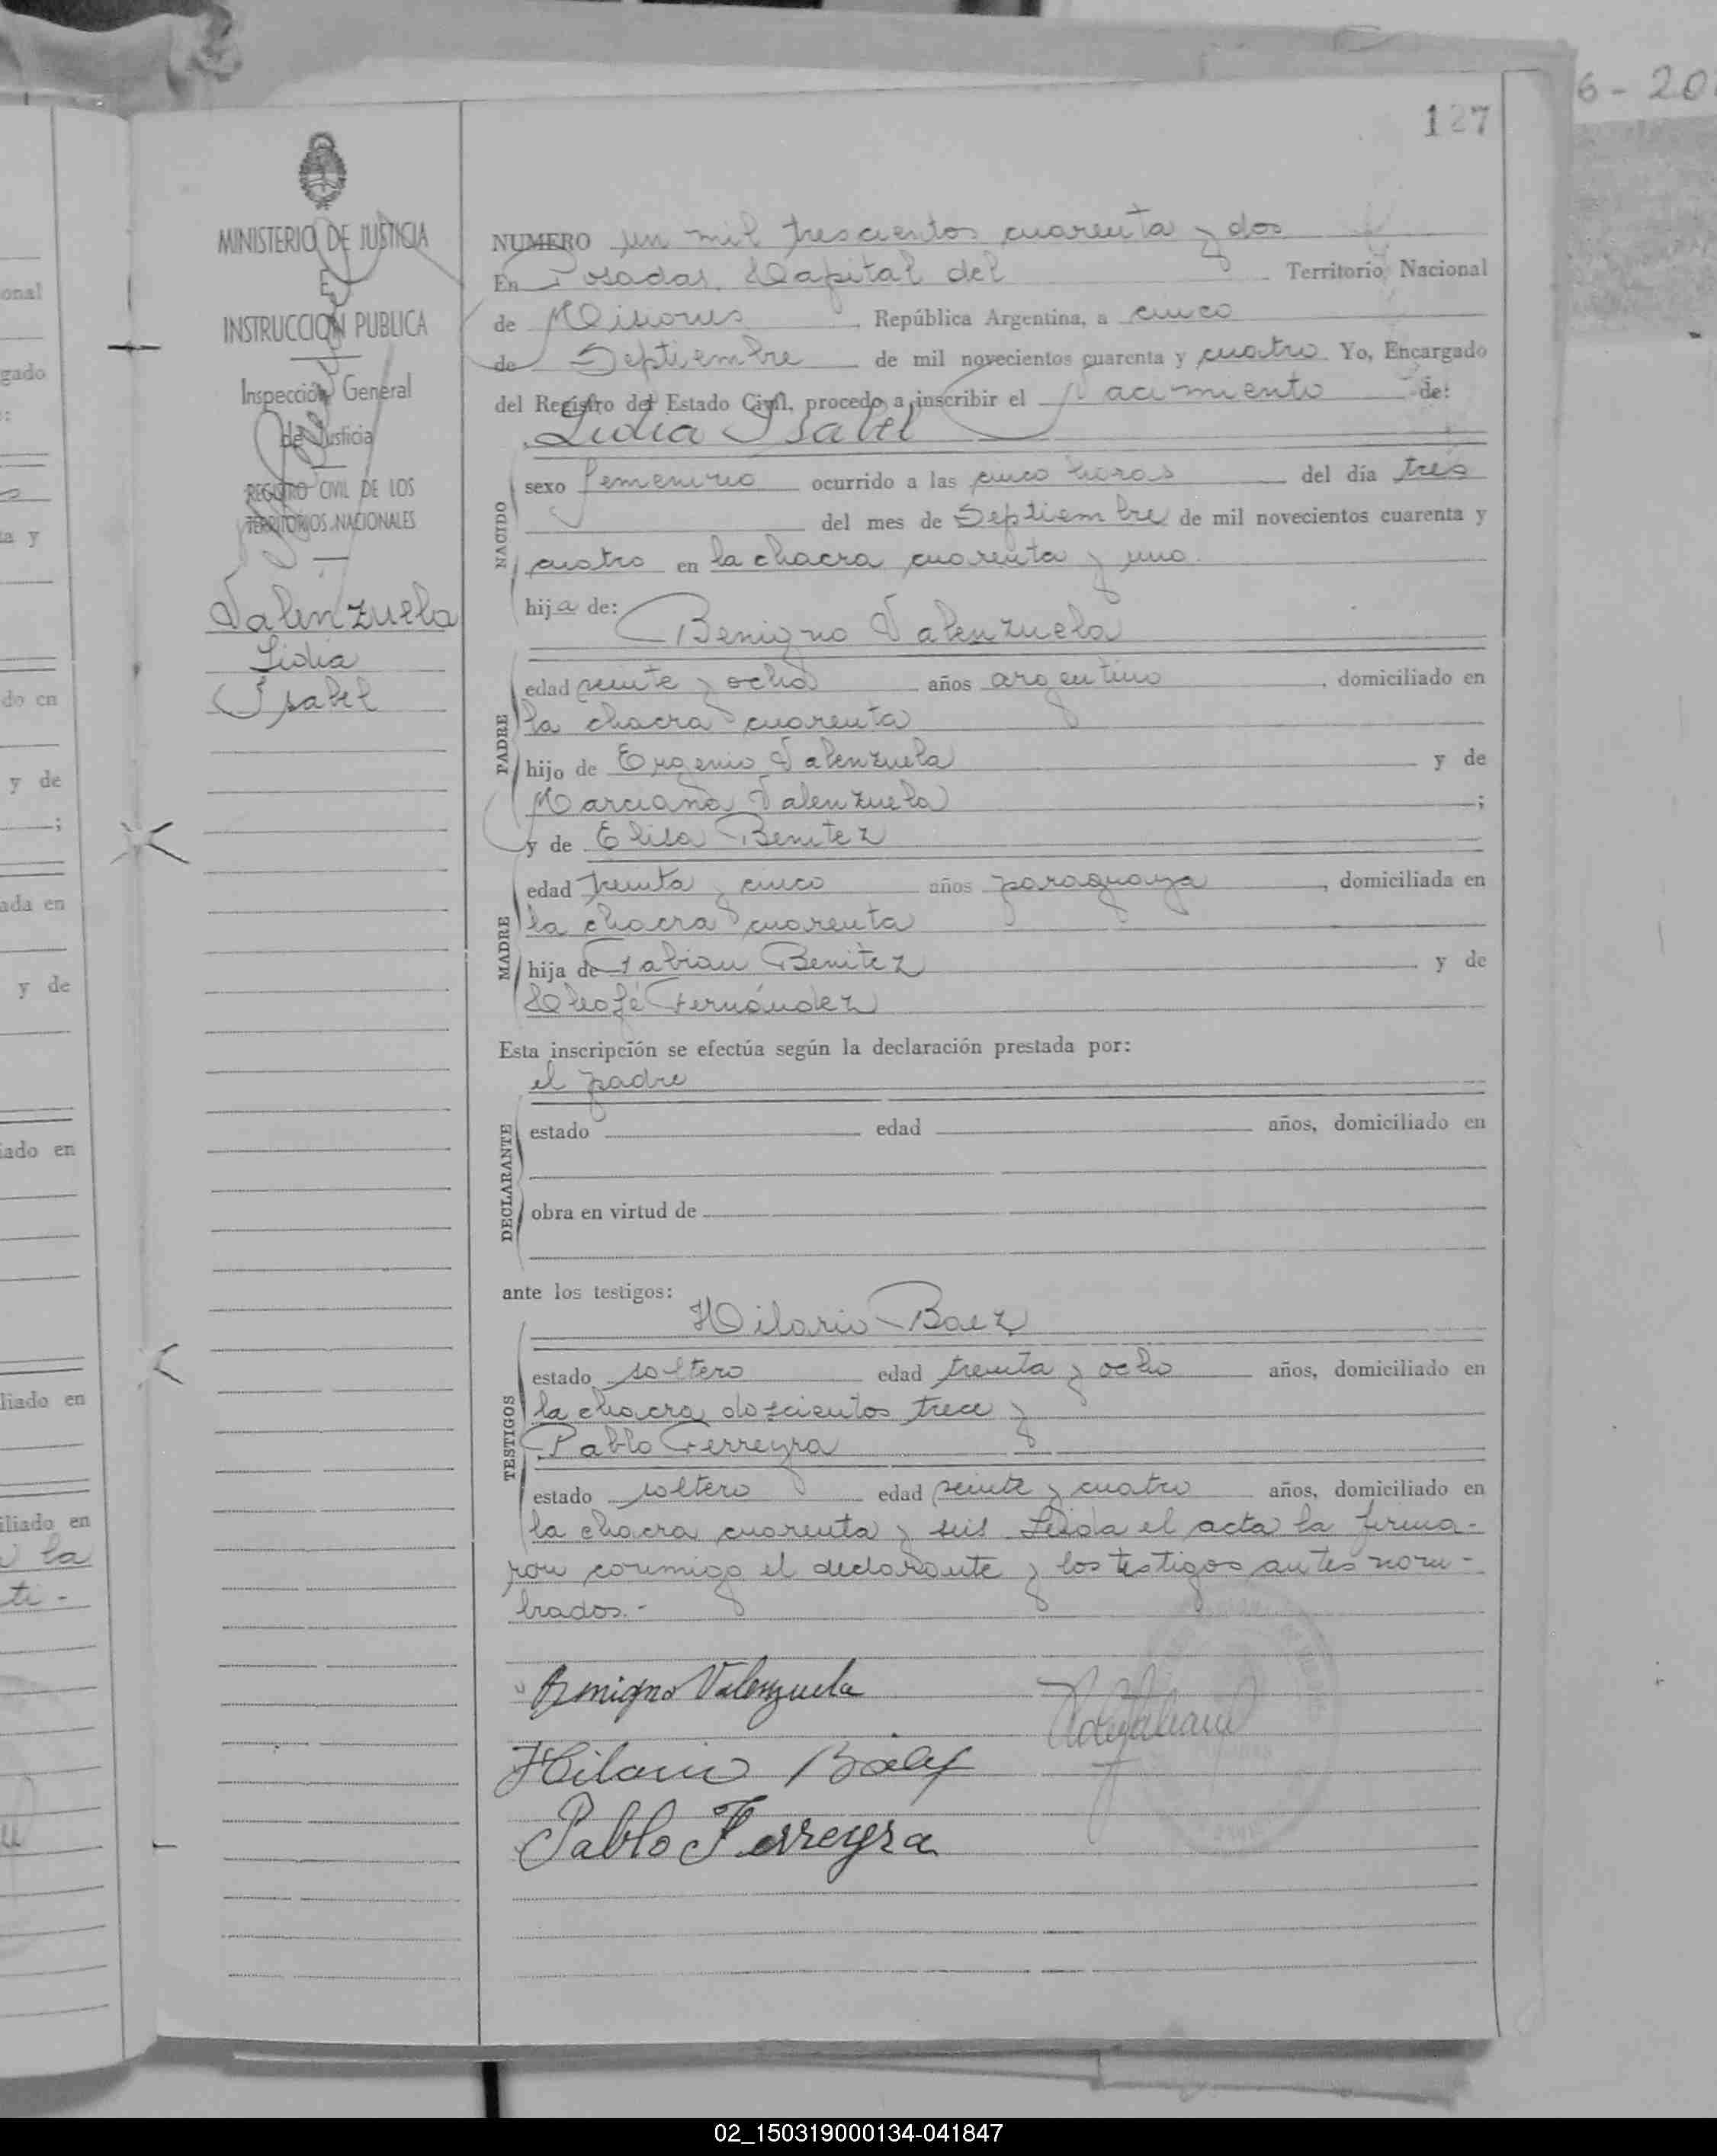 6-20
127
MINISTERIO DE JUSTICIA
E
INSTRUCCION PUBLICA
Inspección General
de Justicia
REGISTRO CIVIL DE LOS
TERRITORIOS NACIONALES
Valenzuela
Lidia
Isabel
NUMERO un mil trescientos cuarenta y dos
En Posadas, Capital del Territorio Nacional
de Misiones, República Argentina, a cinco
de Septiembre de mil novecientos cuarenta y cuatro. Yo, Encargado
del Registro del Estado Civil, procedo a inscribir el Nacimiento de:
Lidia Isabel
NACIDO
sexo femenino ocurrido a las cinco horas del día tres
del mes de Septiembre de mil novecientos cuarenta y
cuatro en la chacra cuarenta y uno.
hija de:
Benigno Valenzuela
PADRE
edad veinte y ocho años argentino, domiciliado en
la chacra cuarenta
hijo de Eugenio Valenzuela y de
Marciana Valenzuela;
y de Elisa Benitez
MADRE
edad treinta y cinco años paraguaya, domiciliada en
la chacra cuarenta
hija de Fabian Benitez y de
Cleofé Fernández
Esta inscripción se efectúa según la declaración prestada por:
el padre
DECLARANTE
estado edad años, domiciliado en
obra en virtud de
ante los testigos:
Hilario Baez
TESTIGOS
estado soltero edad treinta y ocho años, domiciliado en
la chacra doscientos trece y
Pablo Ferreyra
estado soltero edad veinte y cuatro años, domiciliado en
la chacra cuarenta y seis. Leida el acta la firma-
ron conmigo el declarante y los testigos antes nom-
brados.-
Benigno Valenzuela
Hilario Báez
Pablo Ferreyra
02_150319000134-041847